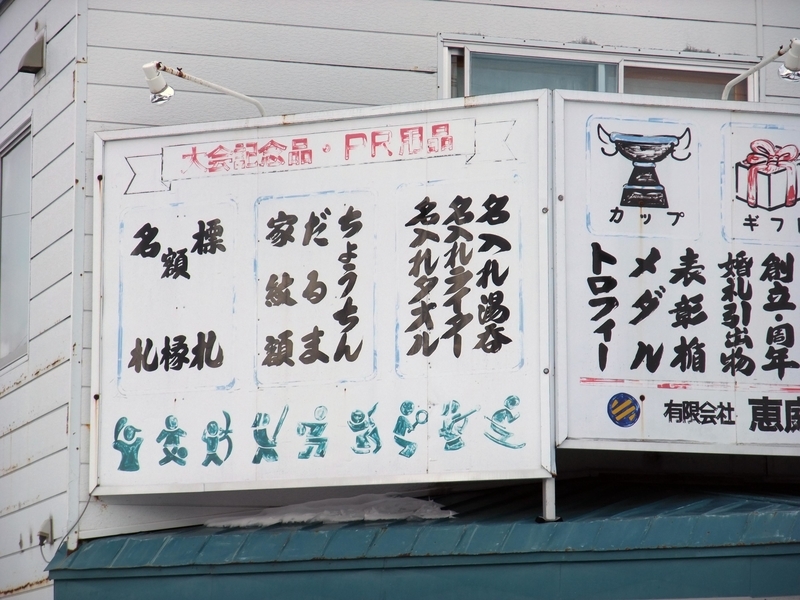 大会記念品・PR用品
名入れ湯呑
名入れライター
名入れタオル
ちょうちん
だるま
家紋額
標札
額縁
名札
カップ
ギフト
創立・周年
婚礼引出物
表彰楯
メダル
トロフィー
有限会社 恵庭